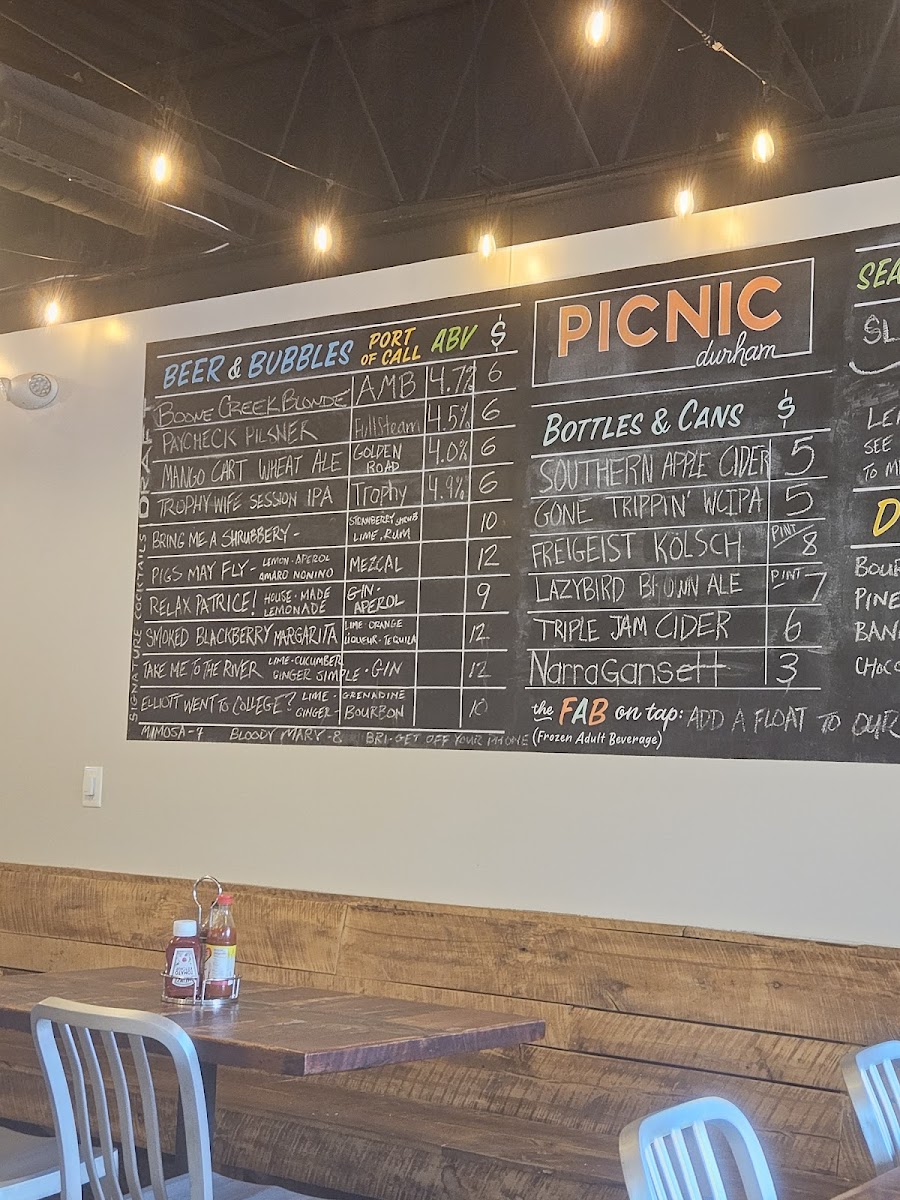 BEER & BUBBLES PORT OF CALL ABV $
DRAFT
BOONE CREEK BLONDE AMB 4.7% 6
PAYCHECK PILSNER Fullsteam 4.5% 6
MANGO CART WHEAT ALE GOLDEN ROAD 4.0% 6
TROPHY WIFE SESSION IPA Trophy 4.9% 6
SIGNATURE COCKTAILS
BRING ME A SHRUBBERY - STRAWBERRY SHRUB LIME, RUM 10
PIGS MAY FLY - LEMON - APEROL AMARO NONINO MEZCAL 12
RELAX PATRICE! HOUSE-MADE LEMONADE GIN - APEROL 9
SMOKED BLACKBERRY MARGARITA LIME - ORANGE LIQUEUR - TEQUILA 12
TAKE ME TO THE RIVER LIME - CUCUMBER GINGER SIMPLE - GIN 12
ELLIOTT WENT TO COLLEGE? LIME - GINGER - GRENADINE BOURBON 10
MIMOSA - 7 BLOODY MARY - 8 BRI - GET OFF YOUR PHONE
PICNIC
durham
BOTTLES & CANS $
SOUTHERN APPLE CIDER 5
GONE TRIPPIN' WCIPA 5
FREIGEIST KOLSCH PINT/8
LAZYBIRD BROWN ALE PINT/7
TRIPLE JAM CIDER 6
NarraGansett 3
the FAB on tap: ADD A FLOAT TO OUR
(Frozen Adult Beverage)
SEA
SL
LE
SEE
TO M
D
BOUR
PINE
BAN
CHOC